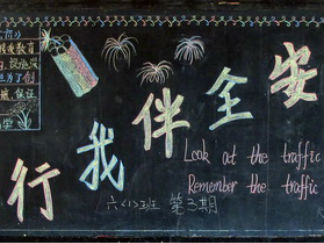 安全伴我行
Look at the traffic
Remember the traffic
六<1>班 第3期
教育
为了创
保证
学